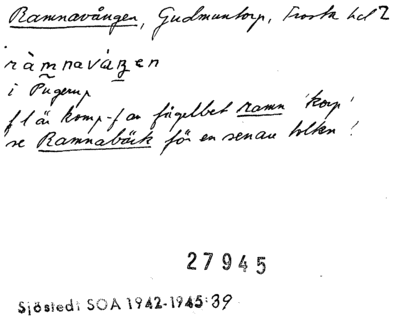 Ramnavången, Gudmuntorp, Frosta hd 2
ràmnaváŋen
i Pugerup
f l är komp-f av fågelbet ramn 'korp'
se Ramnabäck för en senare tolkn!
27945
Sjöstedt SOA 1942-1945:39